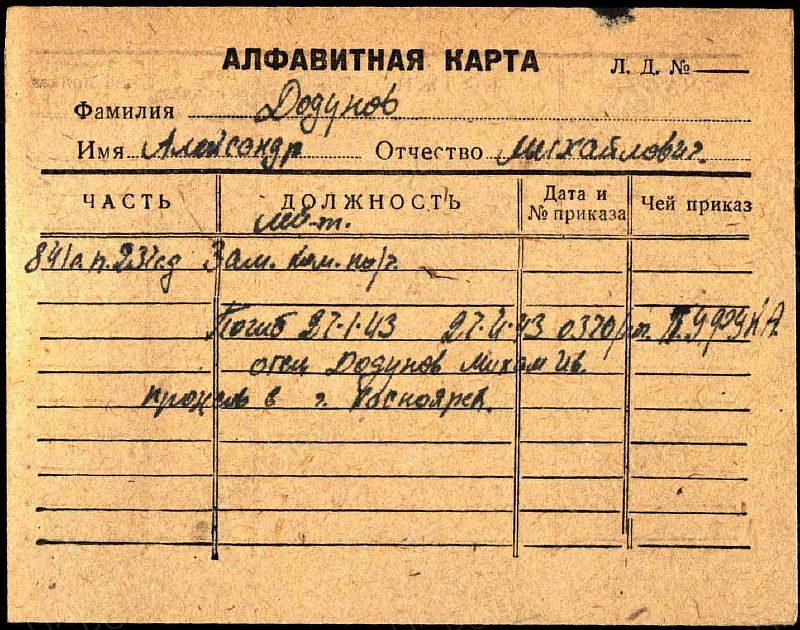 АЛФАВИТНАЯ КАРТА Л. Д. №
Фамилия Додунов
Имя Александр Отчество Михайлович.
ЧАСТЬ ДОЛЖНОСТЬ Дата и № приказа Чей приказ
84/а п. 237сд Зам. ком.
Погиб 27.1.43 27.4.43 0370 ГУФКА
отец Додунов Михаил Ив.
г. Красноярск.